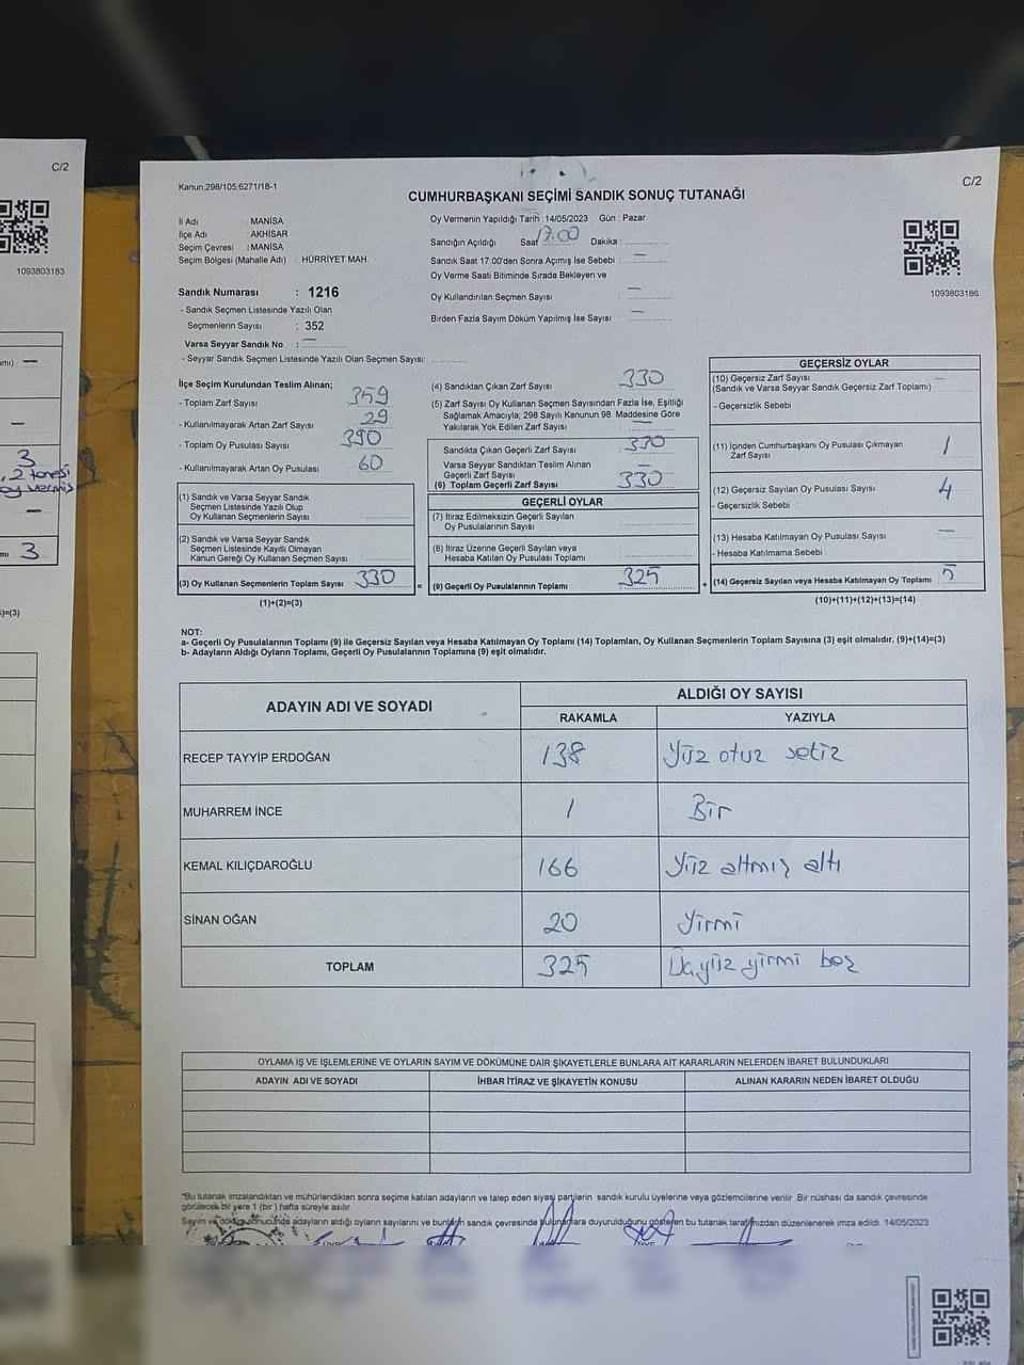 C/2
1093803183
3
3
Kanun,298/105,6271/18-1
C/2
CUMHURBAŞKANI SEÇİMİ SANDIK SONUÇ TUTANAĞI
İl Adı : MANİSA
İlçe Adı : AKHİSAR
Seçim Çevresi : MANİSA
Seçim Bölgesi (Mahalle Adı) : HÜRRİYET MAH.
Oy Vermenin Yapıldığı Tarih : 14/05/2023 Gün : Pazar
Sandığın Açıldığı Saat 17:00 Dakika :
Sandık Saat 17:00'den Sonra Açımış İse Sebebi —
Oy Verme Saati Bitiminde Sırada Bekleyen ve
Oy Kullandırılan Seçmen Sayısı —
Birden Fazla Sayım Döküm Yapılmış İse Sayısı —
1093803186
Sandık Numarası : 1216
- Sandık Seçmen Listesinde Yazılı Olan
Seçmenlerin Sayısı : 352
Varsa Seyyar Sandık No : —
- Seyyar Sandık Seçmen Listesinde Yazılı Olan Seçmen Sayısı:
İlçe Seçim Kurulundan Teslim Alınan;
- Toplam Zarf Sayısı 359
- Kullanılmayarak Artan Zarf Sayısı 29
- Toplam Oy Pusulası Sayısı 390
- Kullanılmayarak Artan Oy Pusulası 60
(1) Sandık ve Varsa Seyyar Sandık
Seçmen Listesinde Yazılı Olup
Oy Kullanan Seçmenlerin Sayısı
(2) Sandık ve Varsa Seyyar Sandık
Seçmen Listesinde Kayıtlı Olmayan
Kanun Gereği Oy Kullanan Seçmen Sayısı
(3) Oy Kullanan Seçmenlerin Toplam Sayısı 330
(1)+(2)=(3)
(4) Sandıktan Çıkan Zarf Sayısı 330
(5) Zarf Sayısı Oy Kullanan Seçmen Sayısından Fazla İse, Eşitliği
Sağlamak Amacıyla; 298 Sayılı Kanunun 98. Maddesine Göre
Yakılarak Yok Edilen Zarf Sayısı —
Sandıkta Çıkan Geçerli Zarf Sayısı 330
Varsa Seyyar Sandıktan Teslim Alınan
Geçerli Zarf Sayısı —
(6) Toplam Geçerli Zarf Sayısı 330
GEÇERLİ OYLAR
(7) İtiraz Edilmeksizin Geçerli Sayılan
Oy Pusulalarının Sayısı
(8) İtiraz Üzerine Geçerli Sayılan veya
Hesaba Katılan Oy Pusulası Toplamı
(9) Geçerli Oy Pusulalarının Toplamı 325
GEÇERSİZ OYLAR
(10) Geçersiz Zarf Sayısı
(Sandık ve Varsa Seyyar Sandık Geçersiz Zarf Toplamı) —
- Geçersizlik Sebebi
(11) İçinden Cumhurbaşkanı Oy Pusulası Çıkmayan
Zarf Sayısı 1
(12) Geçersiz Sayılan Oy Pusulası Sayısı 4
- Geçersizlik Sebebi
(13) Hesaba Katılmayan Oy Pusulası Sayısı —
- Hesaba Katılmama Sebebi
(14) Geçersiz Sayılan veya Hesaba Katılmayan Oy Toplamı 5
(10)+(11)+(12)+(13)=(14)
NOT:
a- Geçerli Oy Pusulalarının Toplamı (9) ile Geçersiz Sayılan veya Hesaba Katılmayan Oy Toplamı (14) Toplamları, Oy Kullanan Seçmenlerin Toplam Sayısına (3) eşit olmalıdır, (9)+(14)=(3)
b- Adayların Aldığı Oyların Toplamı, Geçerli Oy Pusulalarının Toplamına (9) eşit olmalıdır.
ADAYIN ADI VE SOYADI
ALDIĞI OY SAYISI
RAKAMLA YAZIYLA
RECEP TAYYİP ERDOĞAN 138 Yüz otuz sekiz
MUHARREM İNCE 1 Bir
KEMAL KILIÇDAROĞLU 166 Yüz altmış altı
SİNAN OĞAN 20 Yirmi
TOPLAM 325 Üçyüz yirmi beş
OYLAMA İŞ VE İŞLEMLERİNE VE OYLARIN SAYIM VE DÖKÜMÜNE DAİR ŞİKAYETLERLE BUNLARA AİT KARARLARIN NELERDEN İBARET BULUNDUKLARI
ADAYIN ADI VE SOYADI İHBAR İTİRAZ VE ŞİKAYETİN KONUSU ALINAN KARARIN NEDEN İBARET OLDUĞU
*Bu tutanak imzalandıktan ve mühürlendikten sonra seçime katılan adayların ve talep eden siyasi partilerin sandık kurulu üyelerine veya gözlemcilerine verilir. Bir nüshası da sandık çevresinde
görülecek bir yere 1 (bir) hafta süreyle asılır.
Sayım ve döküm sonucunda adayların aldığı oyların sayılarını ve bunların sandık çevresinde bulunanlara duyurulduğunu gösteren bu tutanak tarafımızdan düzenlenerek imza edildi. 14/05/2023